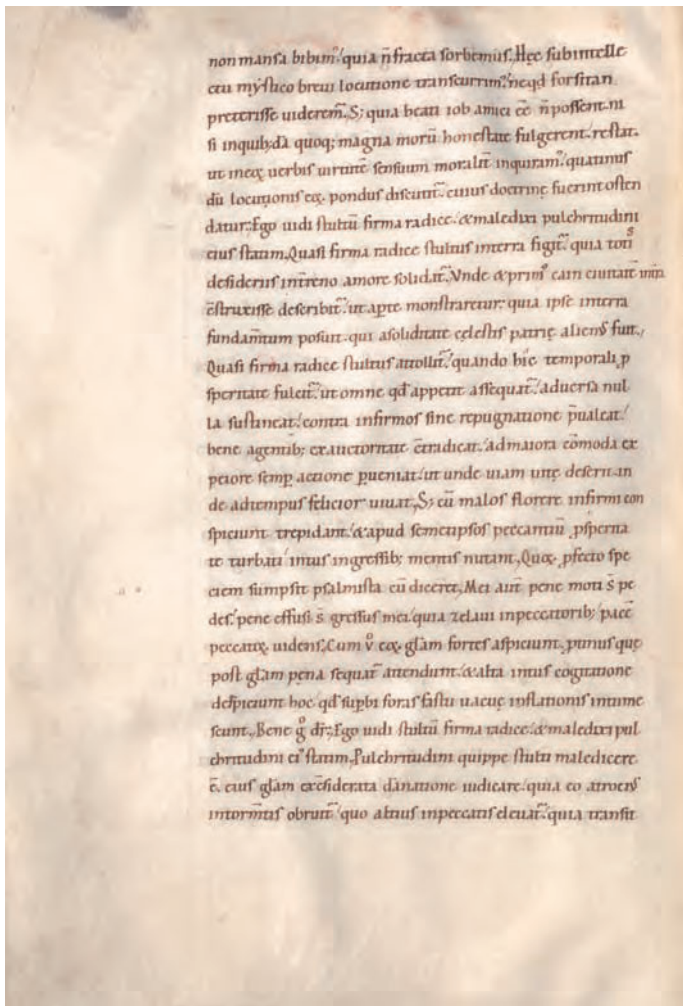 non mansa bibim᷒. quia n̄ fracta sorbemus. Hęc subintelle
ctu mystico breui locutione transcurrim᷒. ne qd forsitan
preterisse uiderem̄. S; quia beati iob amici eē n̄ possent. ni
si in quib;dā quoq; magna morū honestate fulgerent. restat.
ut in eoꝝ uerbis uirtutē sensuum moralit̄ inquiram᷒. quatinus
dū locutionis eoꝝ pondus discutit̄. cuius doctrinę fuerint osten
datur. Ego uidi stultū firma radice. & maledixi pulchritudini
eius statim. Quasi firma radice stultus in terra figit̄. quia totis
desideriis in t̄reno amore solidat̄. Vnde & prim᷒ cain ciuitatē in t̄ra
c̄struxisse describit̄. ut apte monstraretur. quia ipse in terra
fundam̄tum posuit. qui a soliditate cęlestis patrię alien᷒ fuit.
Quasi firma radice stultus attollit̄. quando hīc temporali ꝓ
speritate fulcit̄. ut omne qd appetit assequat̄. aduersa nul
la sustineat. contra infirmos sine repugnatione p̄ualeat.
bene agentib; ex auctoritate c̄tradicat. ad maiora cōmoda ex
peiore semꝑ actione ꝑueniat. ut unde uiam uitę deserit. in
de ad tempus felicior uiuat. S; cū malos florere infirmi con
spiciunt trepidant. & apud semetipsos peccantiū ꝓsperita
te turbati intus ingressib; mentis nutant. Quoꝝ ꝓfecto spe
ciem sumpsit psalmista cū diceret. Mei aut̄ pene moti s̄ pe
des. pene effusi s̄ gressus mei. quia zelaui in peccatorib; pacē
peccatoꝝ uidens. Cum uº eoꝝ gl̄am fortes aspiciunt. ꝓtinus quę
post gl̄am pena sequat̄ attendunt. & alta intus cogitatione
despiciunt hoc. qd suꝑbi foras fastu uacuę inflationis intume
scunt. Bene gº dr̄. Ego uidi stultū firma radice. & maledixi pul
chritudini ei᷒ statim. Pulchritudini quippe stulti maledicere
ē. eius gl̄am ex c̄siderata dānatione iudicare. quia eo atroci᷒
in torm̄tis obruit̄. quo altius in peccatis eleuat̄. quia transit